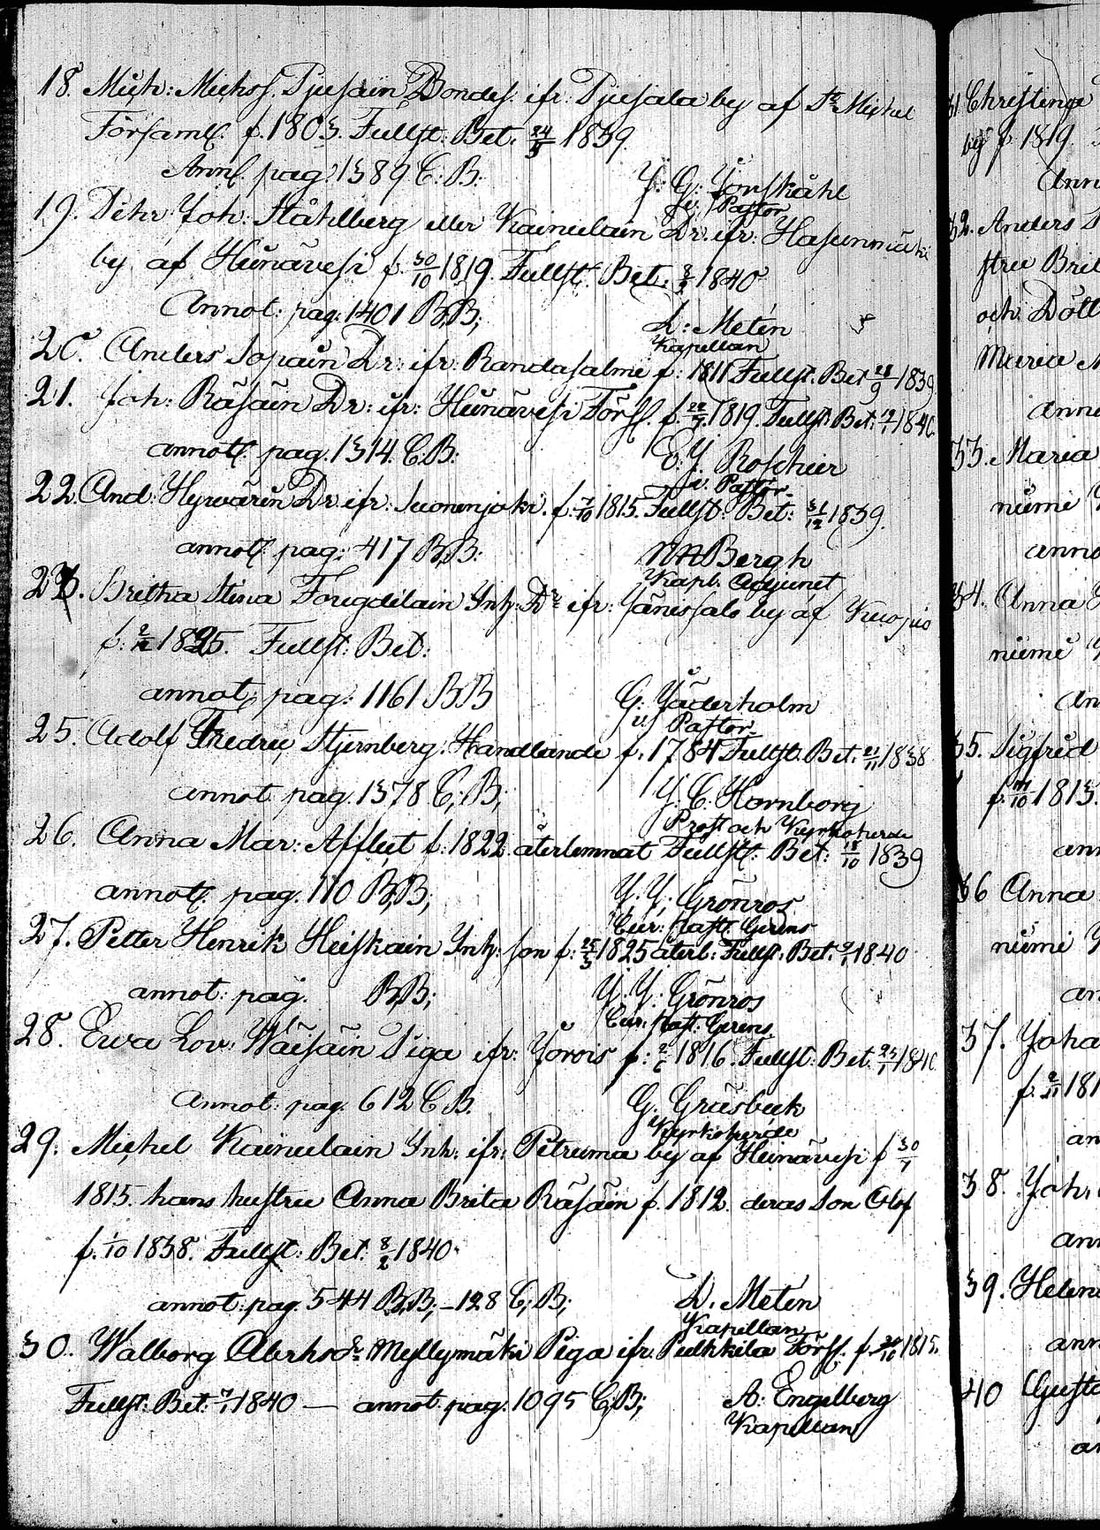 18. Mich: Michs. Pjusain Bondes. ifr: Pjusala by af St Michel
Församl. f. 1803. Fullst. Bet. 24/5 1839
Annt. pag. 1389 C: B:
J: G: Forsståhl
v. Pastor
19. Dehr Joh: Ståhlberg eller Kainulain Dr. ifr: Hasunmäki
by af Heinävesi f. 30/10 1819. Fullst. Bet. 3/3 1840
Annot: pag. 1401 B,B;
L: Meten
Kapellan
20. Anders Sopain Dr: ifr: Randasalmi f: 1811 Fullst. Bet 28/9 1839
21. Joh: Räsäin Dr: ifr: Heinävesi Förs. f. 28/7 1819. Fullst. Bet: 19/1 1840.
annot. pag. 1314. C.B:
E. J. Roschier
v. Pastor
22. And: Hyvärin Dr ifr: Suonenjoki. f: 7/10 1815. Fullst: Bet: 31/12 1839.
annot. pag: 417 B,B:
N A Bergh
Kapl. Adjunct
23. Britha Stina Fougdilain Inh: Dr ifr: Jänissalo by af Kuopio
f: 1825. Fullst: Bet:
annot. pag: 1161 B B
G. Jäderholm
v Pastor
25. Adolf Fredric Stjernberg. Handlande f. 1784 Fullst. Bet. 21/11 1838
annot pag. 1378 C; B;
J. C. Hornborg
Prost och Kyrkoherde
26. Anna Mar: Afflect f. 1822 återlemnat Fullst: Bet: 18/10 1839
annot. pag. 110 B,B;
J. J. Grönros
Cur. Past. Gerens
27. Petter Henrik Heiskain Inh: son f: 25/5 1825 återl: Fullst: Bet. 9/1 1840
annot: pag. B,B;
J. J. Grönros
Cur. Past. Gerens
28. Ewa Lov: Wäisäin Piga ifr: Jorois f: 2/6 1816. Fullst: Bet. 25/1 1840
Annot: pag: 612 C B.
G. Gråsbeck
Kyrkoherde
29. Michel Kainulain Inh. ifr: Petruma by af Heinävesi f 30/7
1815. hans hustru Anna Brita Räsäin f. 1812. deras Son Olof
f. 1/10 1838. Fullst: Bet. 8/2 1840.
annot: pag. 544 B,B; – 128 C; B;
L. Meten
Kapellan
30. Walborg Abrhsdr Myllymäki Piga ifr: Pulkkila Förs. f. 24/10 1815.
Fullst: Bet. 7/1 1840 — annot. pag. 1095 C,B;
A: Engelberg
Kapellan
31 Christina
by f. 1819.
Ann
32. Anders
stru Brit
och Dött
Maria
anno
33. Maria
niemi
anno
34. Anna
niemi
an
35. Sigfrid
f. 1813.
ann
36 Anna
niemi
an
37. Joha
f. 181
an
38. Joh.
ann
39. Helen
ann
40 Gusta
an